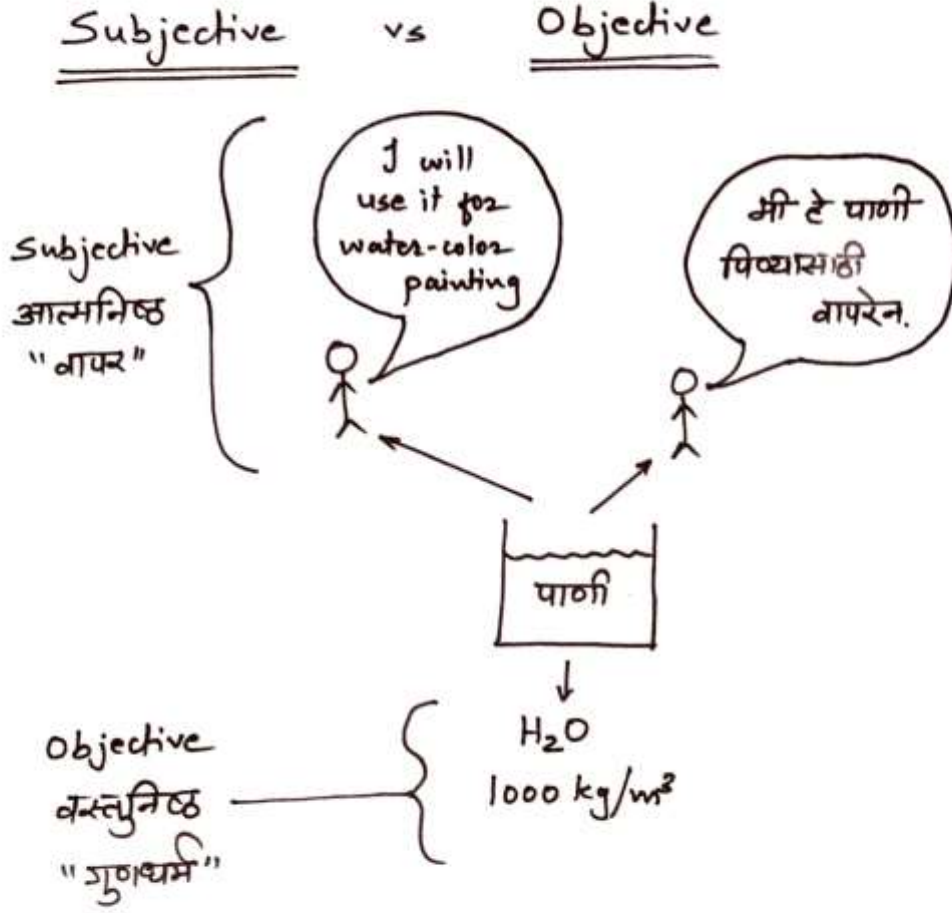 Subjective vs Objective
Subjective
आत्मनिष्ठ
"वापर"
I will
use it for
water-color
painting
मी हे पाणी
पिण्यासाठी
वापरेन.
पाणी
H₂O
1000 kg/m³
Objective
वस्तुनिष्ठ
"गुणधर्म"